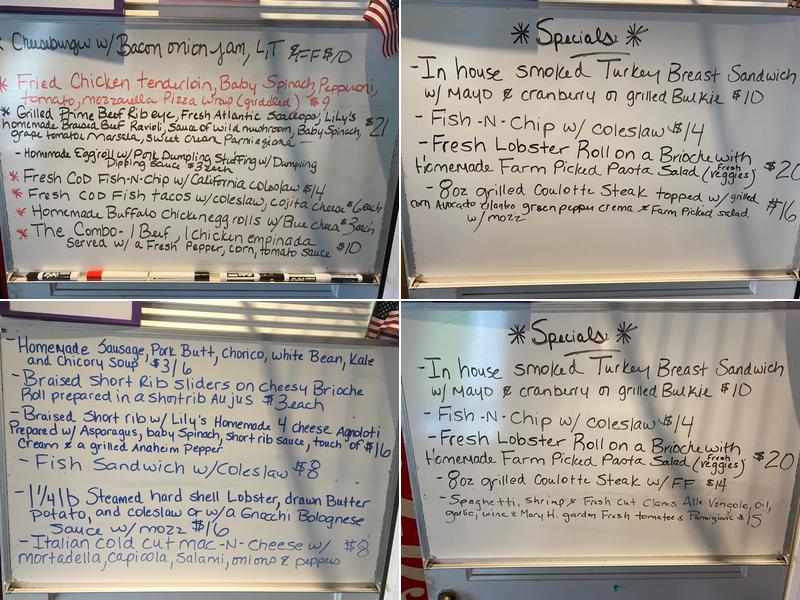 * Cheeseburger w/ Bacon onion jam, L,T &FF $10
* Fried Chicken tenderloin, Baby Spinach, Pepperoni,
tomato, mozzarella Pizza wrap (griddled) $9
* Grilled Prime Beef Rib eye, Fresh Atlantic Scallops, Lily's
homemade Braised Beef Ravioli, Sauce of wild mushroom, Baby Spinach, $21
grape tomato, marsala, sweet cream Parmigiana
- Homemade Eggroll w/ Pork Dumpling Stuffing w/ Dumpling
Dipping Sauce $3 each
* Fresh Cod Fish-N-Chip w/ California coleslaw $14
* Fresh Cod Fish tacos w/ coleslaw, cojita cheese $6 each
* Homemade Buffalo chicken egg rolls w/ Blue cheese $3 each
* The Combo- 1 Beef, 1 Chicken empinada
Served w/ a Fresh Pepper, corn, tomato sauce $10
* Specials *
- In house smoked Turkey Breast Sandwich
w/ Mayo & cranberry on grilled Bulkie $10
- Fish-N-Chip w/ coleslaw $14
- Fresh Lobster Roll on a Brioche with
Homemade Farm Picked Pasta Salad (Fresh veggies) $20
- 8oz grilled Coulotte Steak topped w/ grilled
corn Avocado cilantro green pepper crema & Farm Picked salad $16
w/ mozz
- Homemade Sausage, Pork Butt, Chorico, white Bean, Kale
and Chicory Soup $3/6
- Braised Short Rib Sliders on cheesy Brioche
Roll prepared in a shortrib Au jus $3 each
- Braised Short rib w/ Lily's Homemade 4 cheese Agnoloti
Prepared w/ Asparagus, baby Spinach, short rib sauce, touch of $16
Cream & a grilled Anaheim Pepper
- Fish Sandwich w/ Coleslaw $8
- 1 1/4 lb Steamed hard shell Lobster, drawn Butter
Potato, and coleslaw or w/ a Gnocchi Bolognese
Sauce w/ mozz $16
- Italian Cold cut mac-N-cheese w/ $8
mortadella, capicola, Salami, onions & peppers
* Specials *
- In house smoked Turkey Breast Sandwich
w/ Mayo & cranberry on grilled Bulkie $10
- Fish-N-Chip w/ coleslaw $14
- Fresh Lobster Roll on a Brioche with
Homemade Farm Picked Pasta Salad (Fresh veggies) $20
- 8oz grilled Coulotte Steak w/ FF $14
- Spaghetti, shrimp & Fresh Cut Clams Alle Vongole, oil,
garlic, wine & Mary H. garden Fresh tomatoes Parmigiana $15